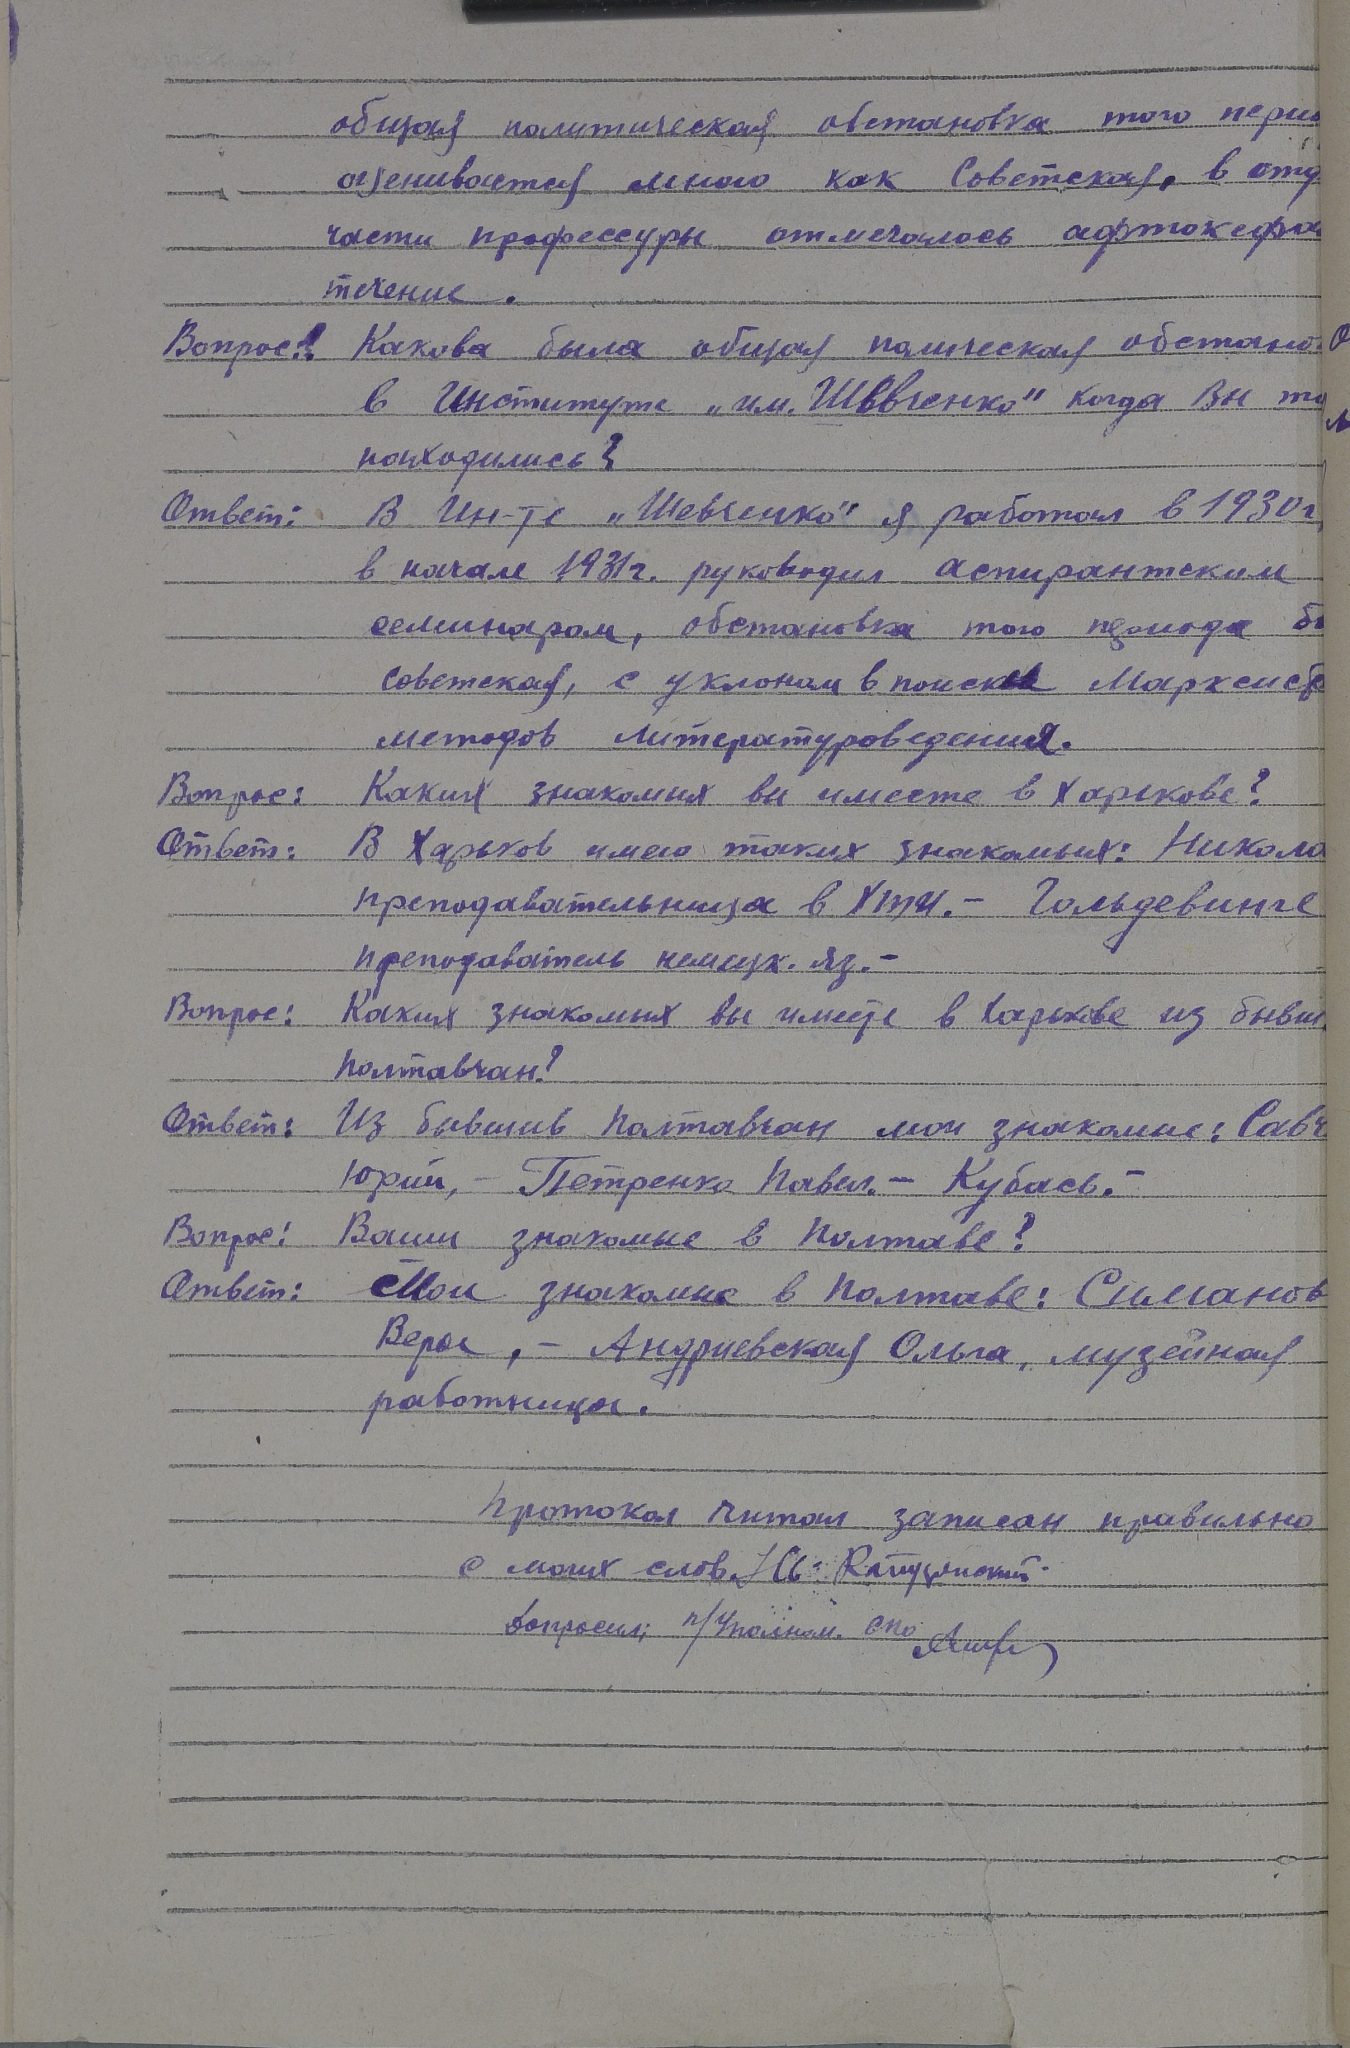 общая политическая обстановка того перио
оценивается мною как Советская, в отд
части профессуры отмечалось афтокефа
течение.
Вопрос: Какова была общая полическая обстано
в Институте „им. Шевченко" когда Вы та
находились?
Ответ: В Ин-те „Шевченко" я работал в 1930г
в начале 1931г. руководил аспирантским
семинаром, обстановка того периода бы
советская, с уклоном в поиски Марксистс
методов литературоведения.
Вопрос: Каких знакомых вы имеете в Харькове?
Ответ: В Харьков имею таких знакомых: Никола
преподавательница в ХТИ. – Гольдевинге
преподаватель немецк. яз. –
Вопрос: Каких знакомых вы имеете в Харькове из бывш.
полтавчан?
Ответ: Из бывшив Полтавчан мои знакомые: Савч
Юрий, – Петренко Павел. – Кубась. –
Вопрос: Ваши знакомые в Полтаве?
Ответ: Мои знакомые в Полтаве: Симанов
Вера, – Андриевская Ольга, музейная
работница.
Протокол читал записан правильно
с моих слов.
Допросил: п/Уполном. СПО